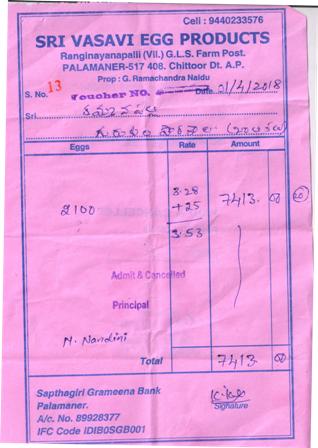 Cell : 9440233576
SRI VASAVI EGG PRODUCTS
Ranginayanapalli (Vil.) G.L.S. Farm Post.
PALAMANER-517 408. Chittoor Dt. A.P.
Prop : G. Ramachandra Naidu
S. No. 13 Voucher NO. Date 01/4/2018
Sri
Eggs Rate Amount
2100 3.28 7413. 00
+25
3.53
Admit & Cancelled
Principal
N. Nandini
Total 7413. 00
Sapthagiri Grameena Bank
Palamaner.
A/c. No. 89928377
IFC Code IDIB0SGB001
Signature